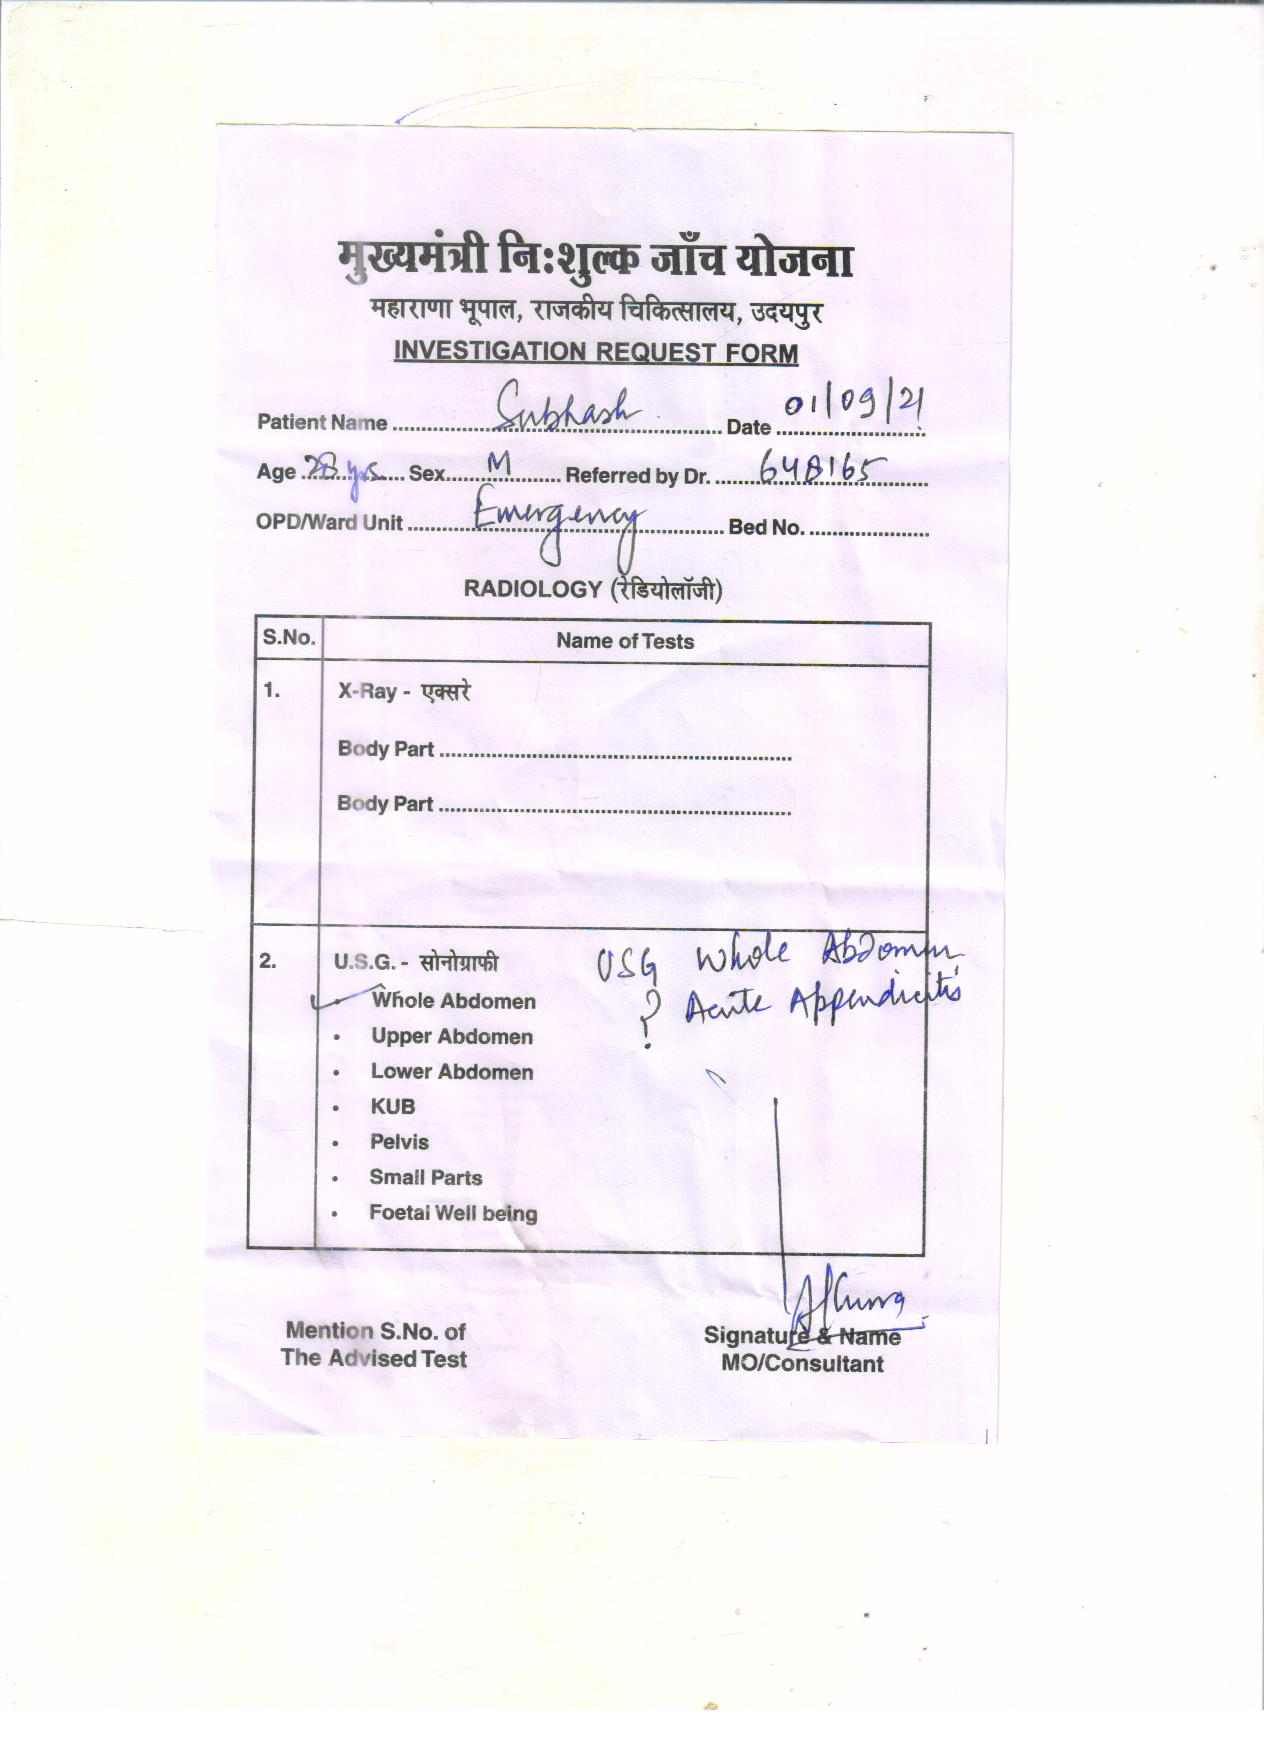 मुख्यमंत्री नि:शुल्क जाँच योजना
महाराणा भूपाल, राजकीय चिकित्सालय, उदयपुर
INVESTIGATION REQUEST FORM
Patient Name Subhash Date 01/09/21
Age 28 yrs Sex M Referred by Dr. 648165
OPD/Ward Unit Emergency Bed No.
RADIOLOGY (रेडियोलॉजी)
S.No. Name of Tests
1. X-Ray - एक्सरे
Body Part
Body Part
2. U.S.G. - सोनोग्राफी USG Whole Abdomen
Whole Abdomen ? Acute Appendicitis
• Upper Abdomen
• Lower Abdomen
• KUB
• Pelvis
• Small Parts
• Foetal Well being
Mention S.No. of Signature & Name
The Advised Test MO/Consultant